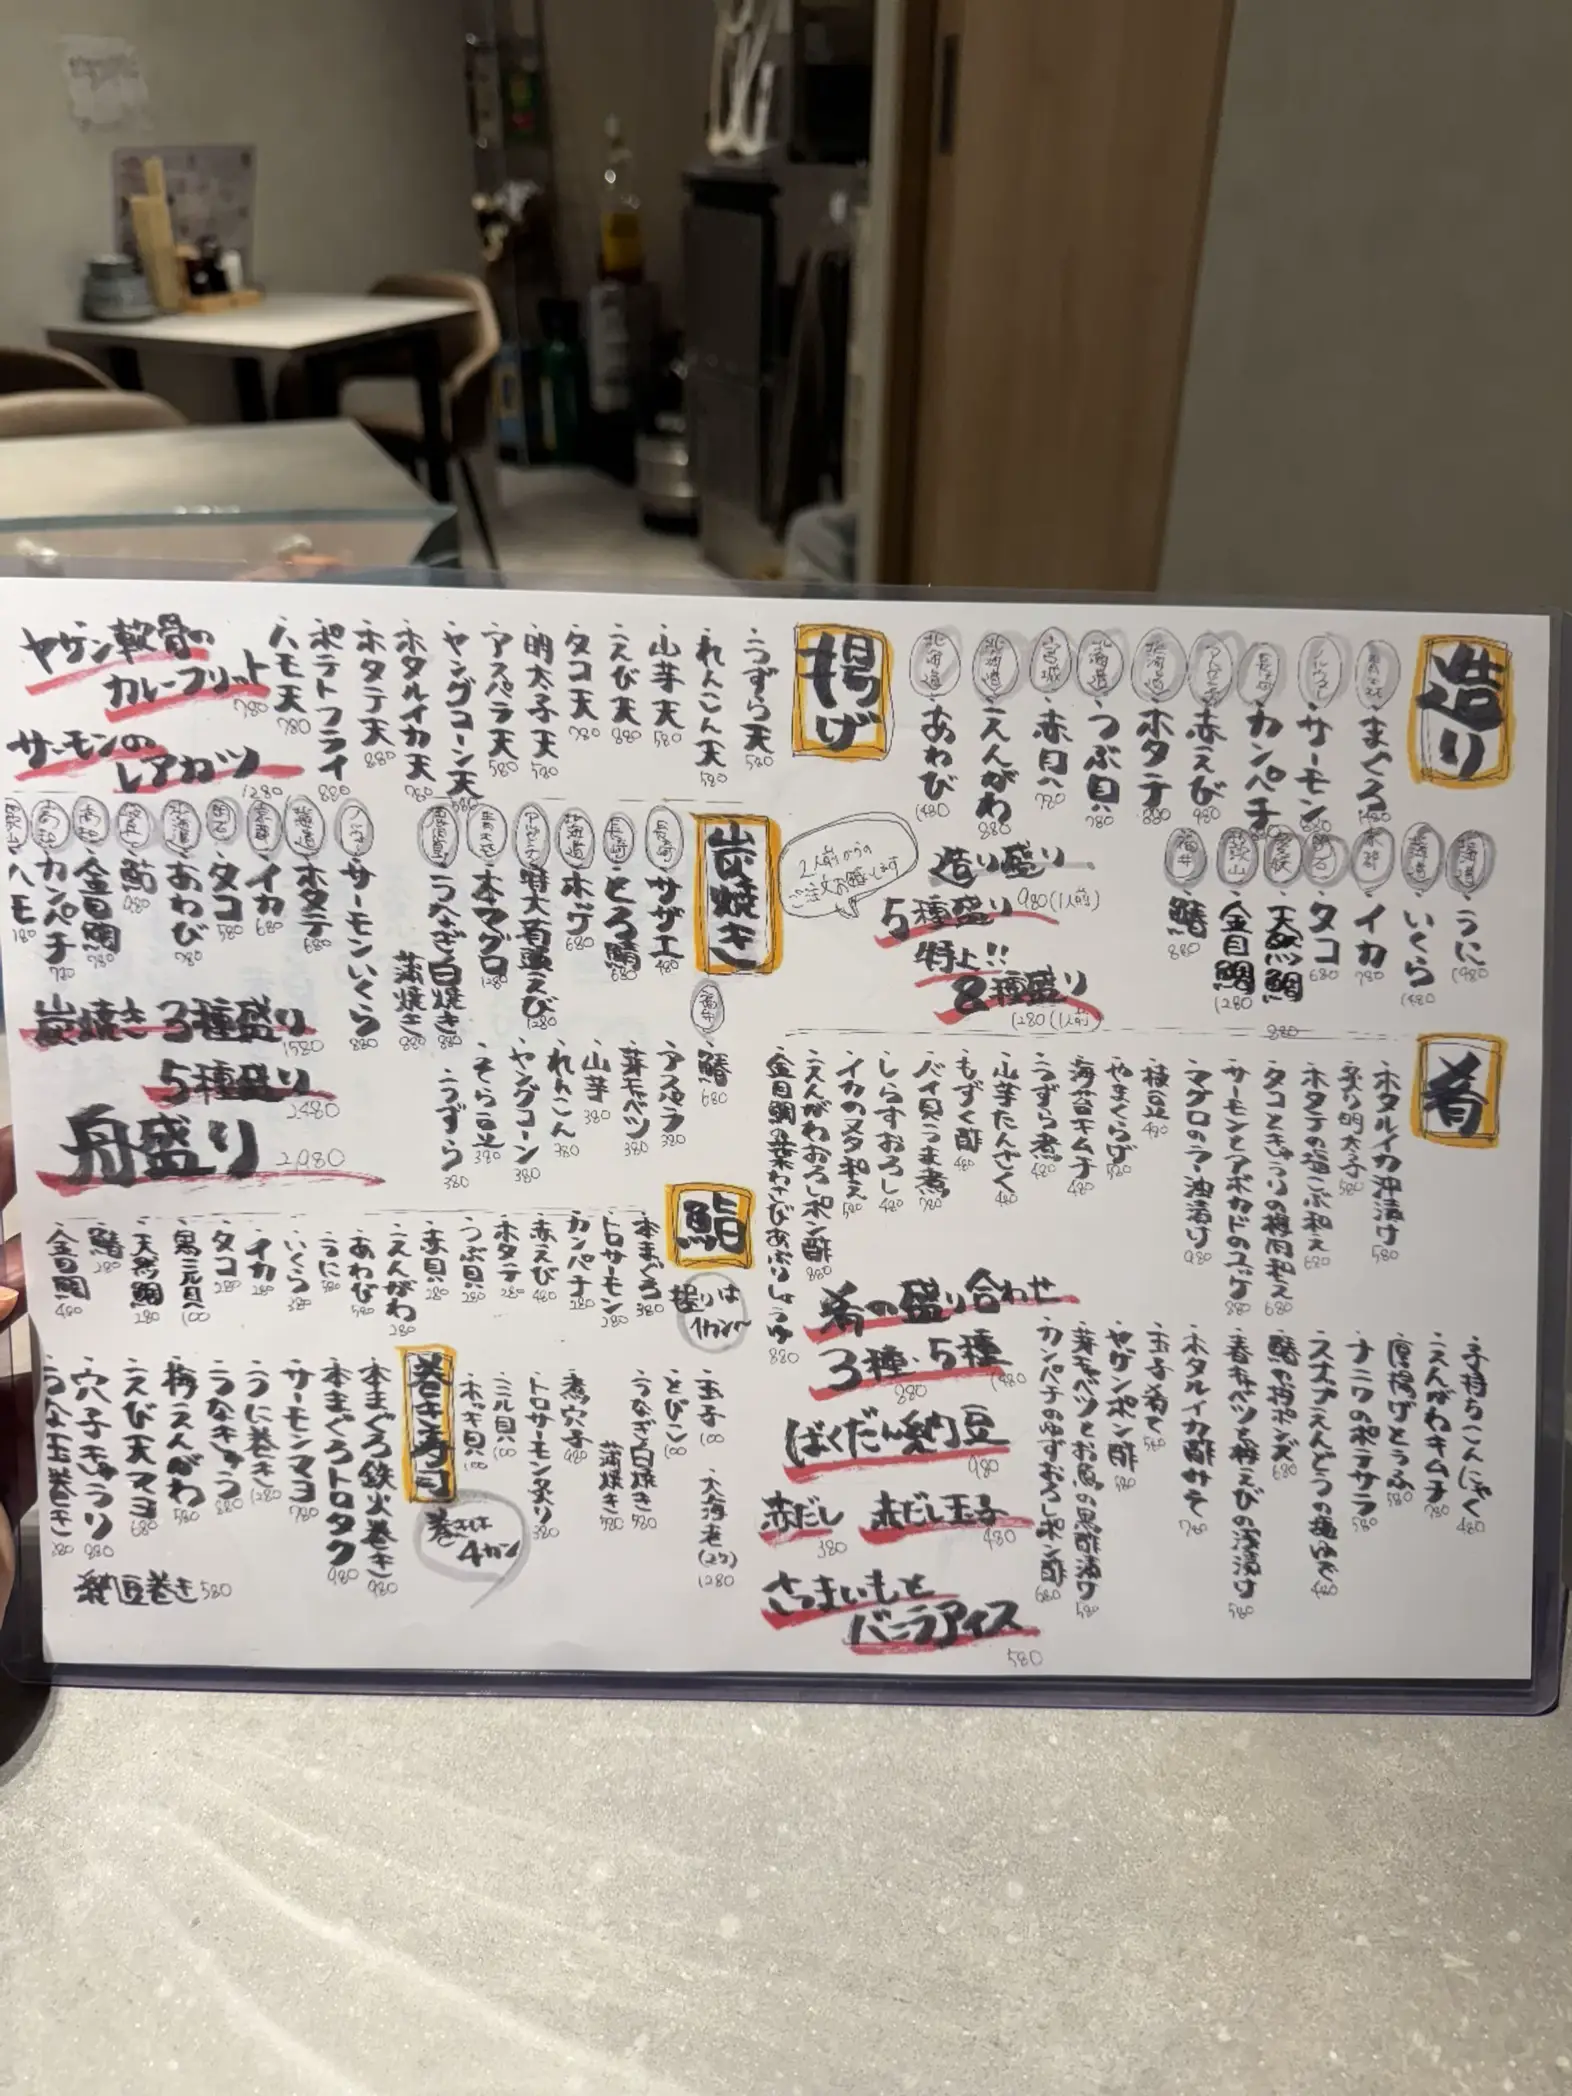 造り
まぐろ
サーモン
カンパチ
赤えび 980
ホタテ
つぶ貝 780
赤貝 780
えんがわ 880
あわび 1480
北海道
宮城
うに 1480
いくら 1480
イカ 780
タコ 680
天然鯛 880
金目鯛 1280
鰆 880
福井
造り盛り
5種盛り 980(1人前)
特上!!
8種盛り 1280(1人前)
2人前からの
ご注文お願いします
肴
ホタルイカ沖漬け 580
炙り明太子 580
ホタテの塩こぶ和え 680
タコときゅうりの梅肉和え 680
サーモンとアボカドのユッケ 880
マグロのラー油漬け 980
枝豆 480
やまくらげ 580
海苔キムチ 480
うずら煮 480
山芋たんざく 480
もずく酢 480
バイ貝うま煮 780
しらすおろし 480
イカのヌタ和え 580
えんがわおろしポン酢 880
金目鯛の葉わさびあぶりしょうゆ 880
子持ちこんにゃく 480
えんがわキムチ 780
厚揚げとうふ 580
ナニワのポテサラ 580
スナップえんどうの塩ゆで 480
鰆の梅ポンズ 680
春キャベツと桜えびの浅漬け 580
ホタルイカ酢みそ 780
玉子肴て 580
ヤゲンポン酢 580
芽キャベツとお魚の黒酢漬け 580
カンパチのゆずおろしポン酢 680
肴の盛り合わせ
3種・5種
880 1480
ばくだん納豆
980
赤だし 380
赤だし玉子 480
さつまいもと
バニラアイス
580
揚げ
うずら天 580
れんこん天 580
山芋天 580
えび天 880
タコ天 780
明太子天 580
アスパラ天 580
ヤングコーン天 580
ホタルイカ天 780
ホタテ天 880
ポテトフライ
ハモ天 780
ヤゲン軟骨の
カレーフリット
780
サーモンの
レアカツ
1280
炭焼き
サザエ 480
とろ鯖 680
ホッケ 680
特大有頭えび 1280
本マグロ 1280
うなぎ白焼き 880
蒲焼き 880
サーモンいくら 880
ホタテ 680
イカ 680
タコ 580
あわび 780
鮎 980
金目鯛 780
カンパチ 780
ハモ
福井
鰆 680
アスパラ 380
芽キャベツ 380
山芋 380
れんこん 380
ヤングコーン 380
そら豆 380
うずら 380
炭焼き 3種盛り
1580
5種盛り
2480
舟盛り 2980
鮨
握りは
1カン〜
本まぐろ 380
トロサーモン 280
カンパチ 280
赤えび 480
ホタテ 280
つぶ貝 280
赤貝 280
えんがわ 280
あわび 580
うに 580
いくら 380
イカ 280
タコ 280
天然鯛 280
鰆 280
金目鯛 480
玉子 100
大海老(2ケ) 1280
とびこ 100
うなぎ白焼き 580
蒲焼き 580
煮穴子 980
トロサーモン炙り 380
ホッキ貝 100
巻き寿司
巻きは
4カン
本まぐろ鉄火巻き 980
本まぐろトロタク 980
サーモンマヨ 780
うに巻き 1280
うなきゅう 880
梅えんがわ 580
えび天マヨ 680
穴子きゅうり 980
納豆巻き 580